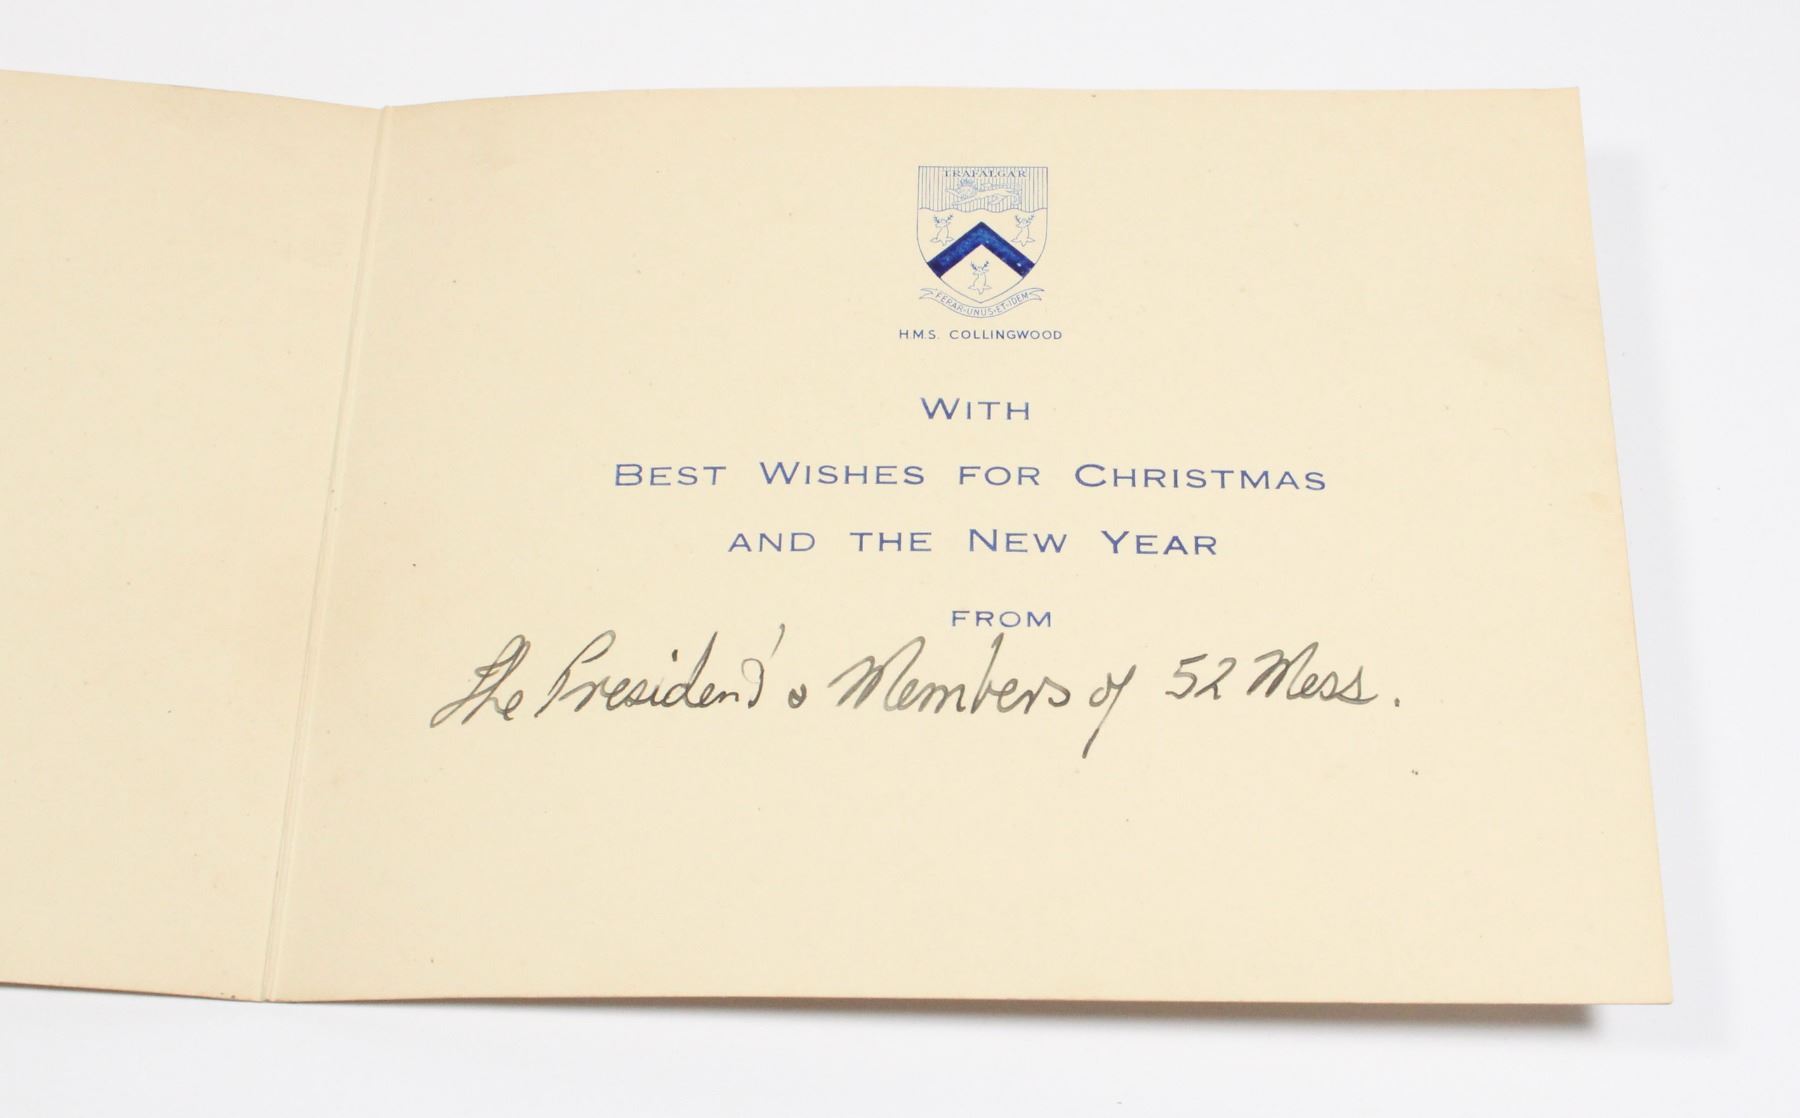 TRAFALGAR
FERAR·UNUS·ET·IDEM
H.M.S. COLLINGWOOD
WITH
BEST WISHES FOR CHRISTMAS
AND THE NEW YEAR
FROM
The President & Members of 52 Mess.